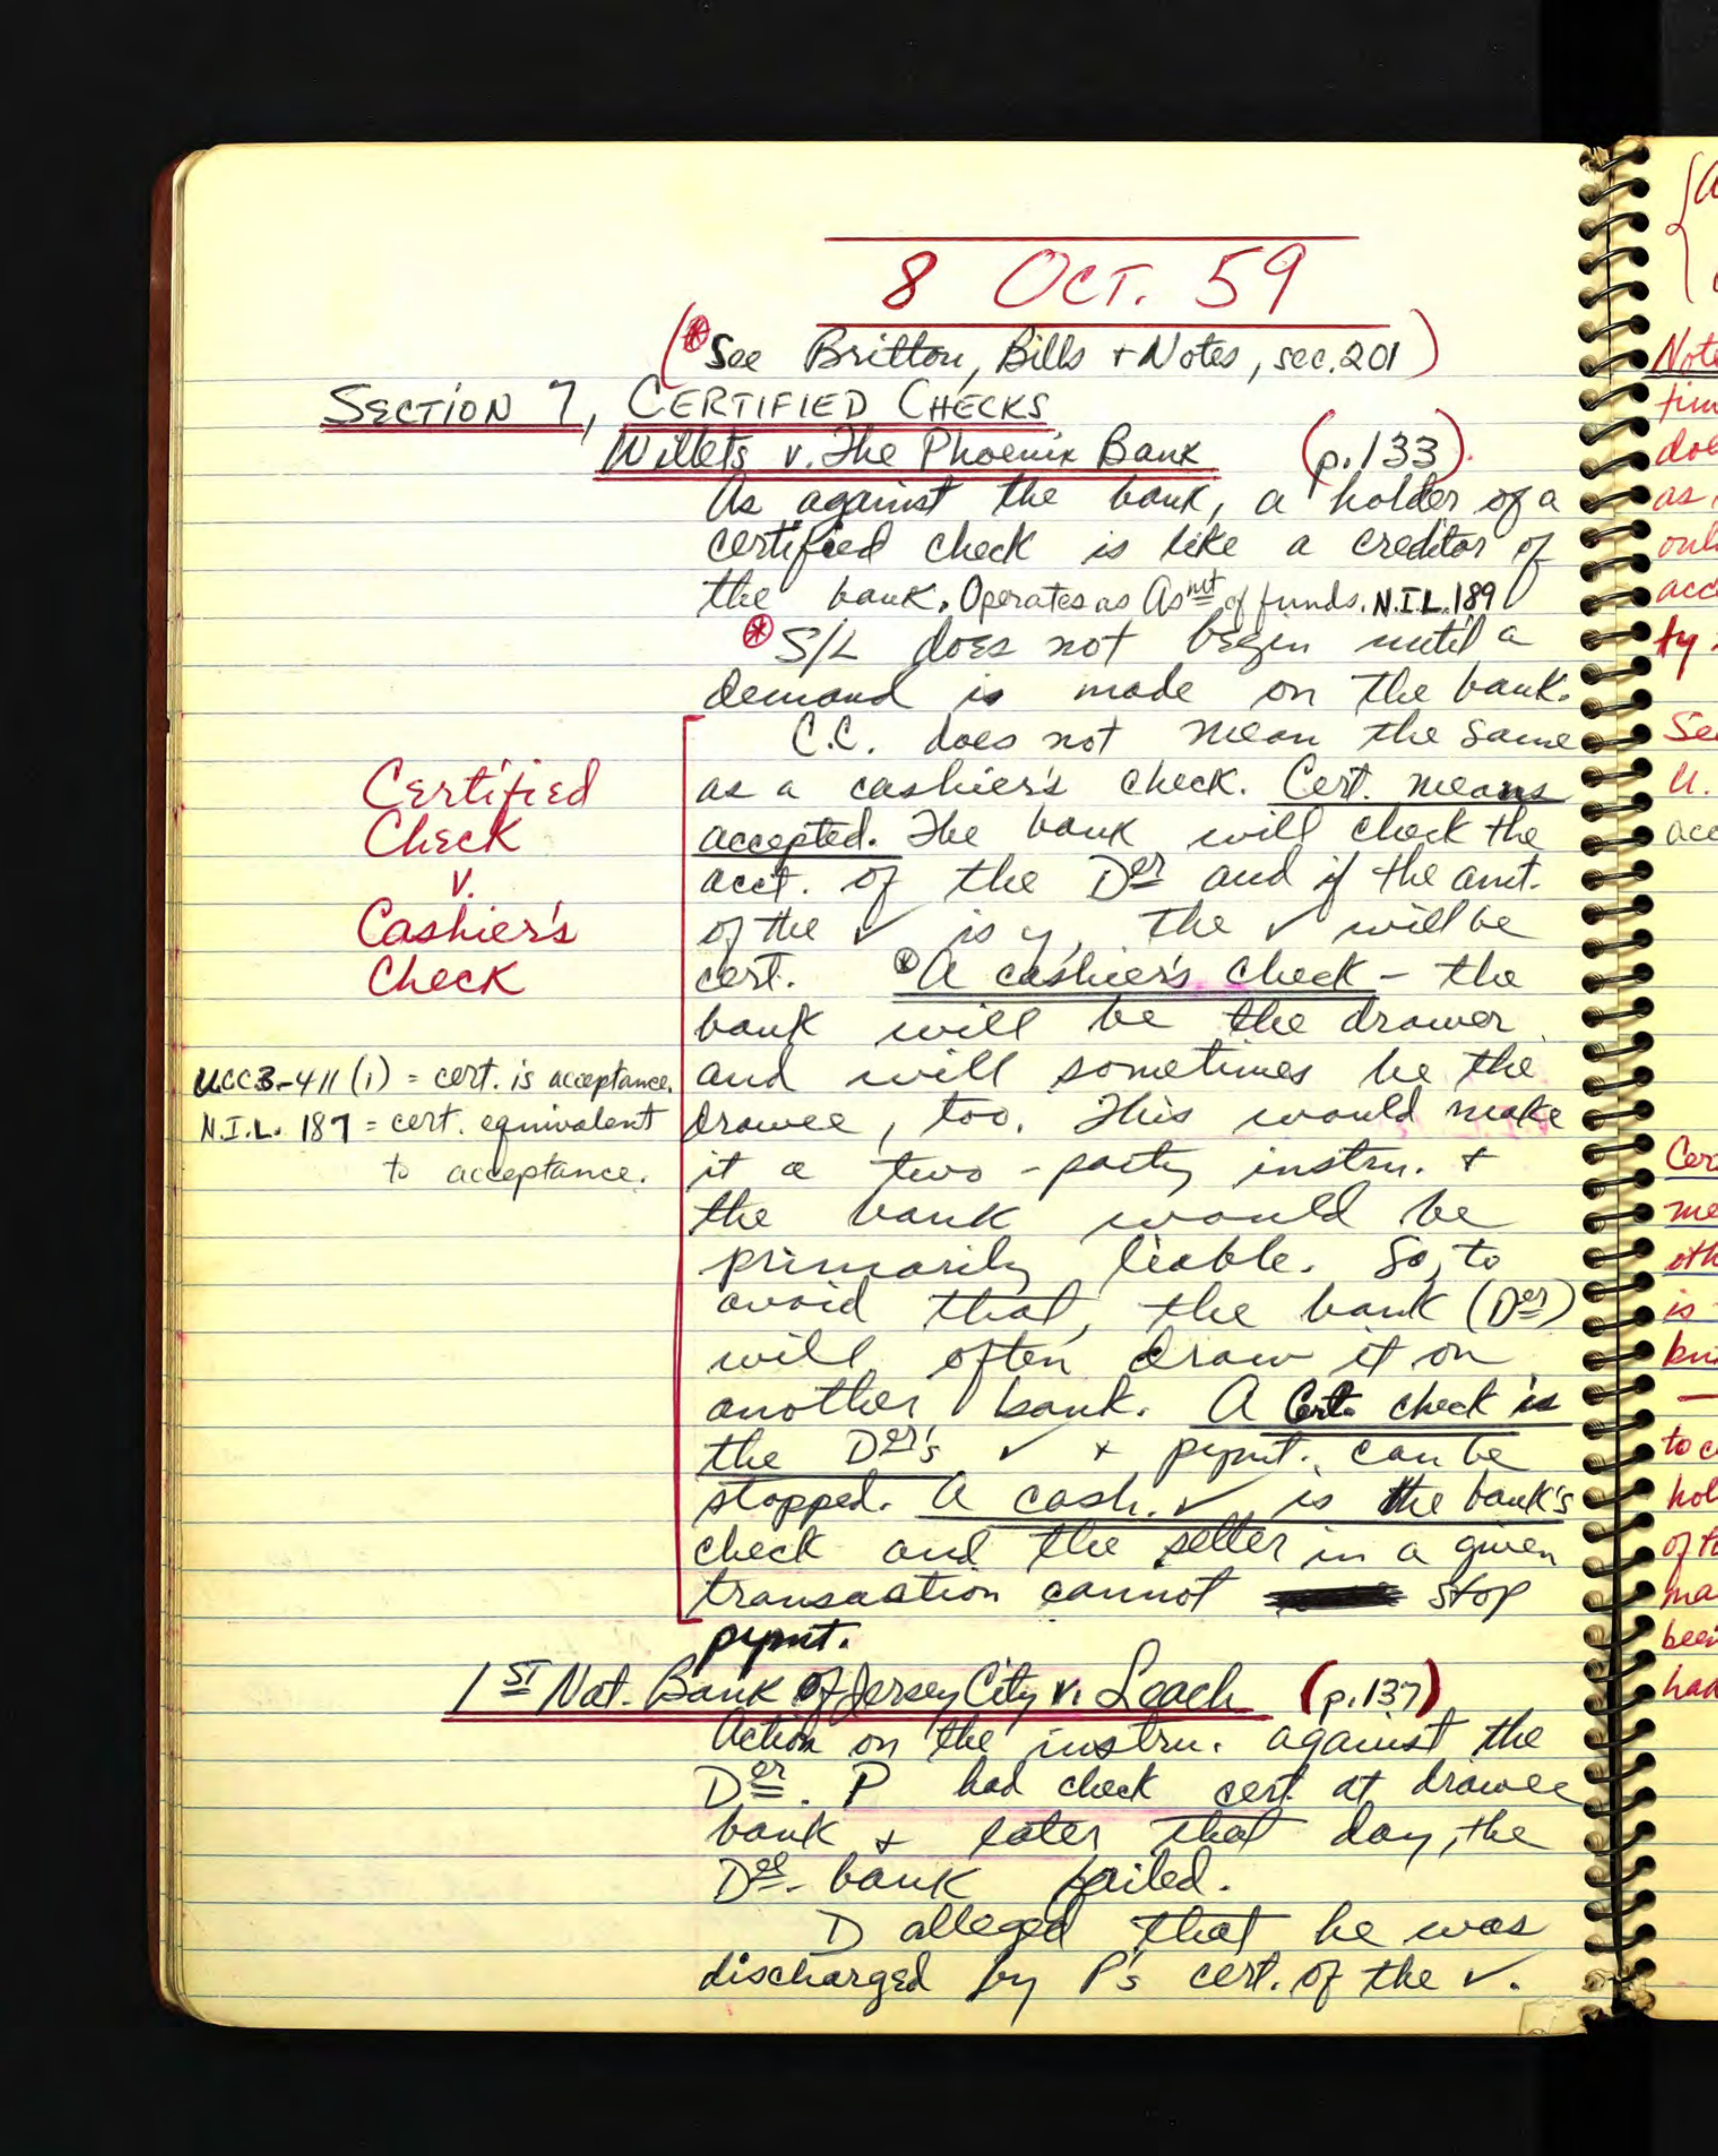 8 OCT. 59
(* See Britton, Bills + Notes, sec. 201)
SECTION 7, CERTIFIED CHECKS
Willets v. The Phoenix Bank (p. 133).
As against the bank, a holder of a
certified check is like a creditor of
the bank. Operates as Asmt of funds. N.I.L. 189
* S/L does not begin until a
demand is made on the bank.
C.C. does not mean the same
as a cashier's check. Cert. means
accepted. The bank will check the
acct. of the Der and if the amt.
of the ✓ is y, the ✓ will be
cert. * A cashier's check - the
bank will be the drawer
and will sometimes be the
drawee, too. This would make
it a two-party instru. +
the bank would be
primarily liable. So, to
avoid that, the bank (Der)
will often draw it on
another bank. A Cert. check is
the Der's ✓ + pymt. can be
stopped. A cash. ✓ is the bank's
check and the seller in a given
transaction cannot stop
pymt.
Certified
Check
v.
Cashier's
Check
UCC 3-411 (1) = cert. is acceptance.
N.I.L. 187 = cert. equivalent
to acceptance.
1ST Nat. Bank of Jersey City v. Leach (p. 137)
Action on the instru. against the
Der. P had check cert. at drawee
bank + later that day, the
Dee. bank failed.
D alleged that he was
discharged by P's cert. of the ✓.
Note
does
as
acc
ty
See
U.
acc
me
is
to c
hol
of t
ma
been
had